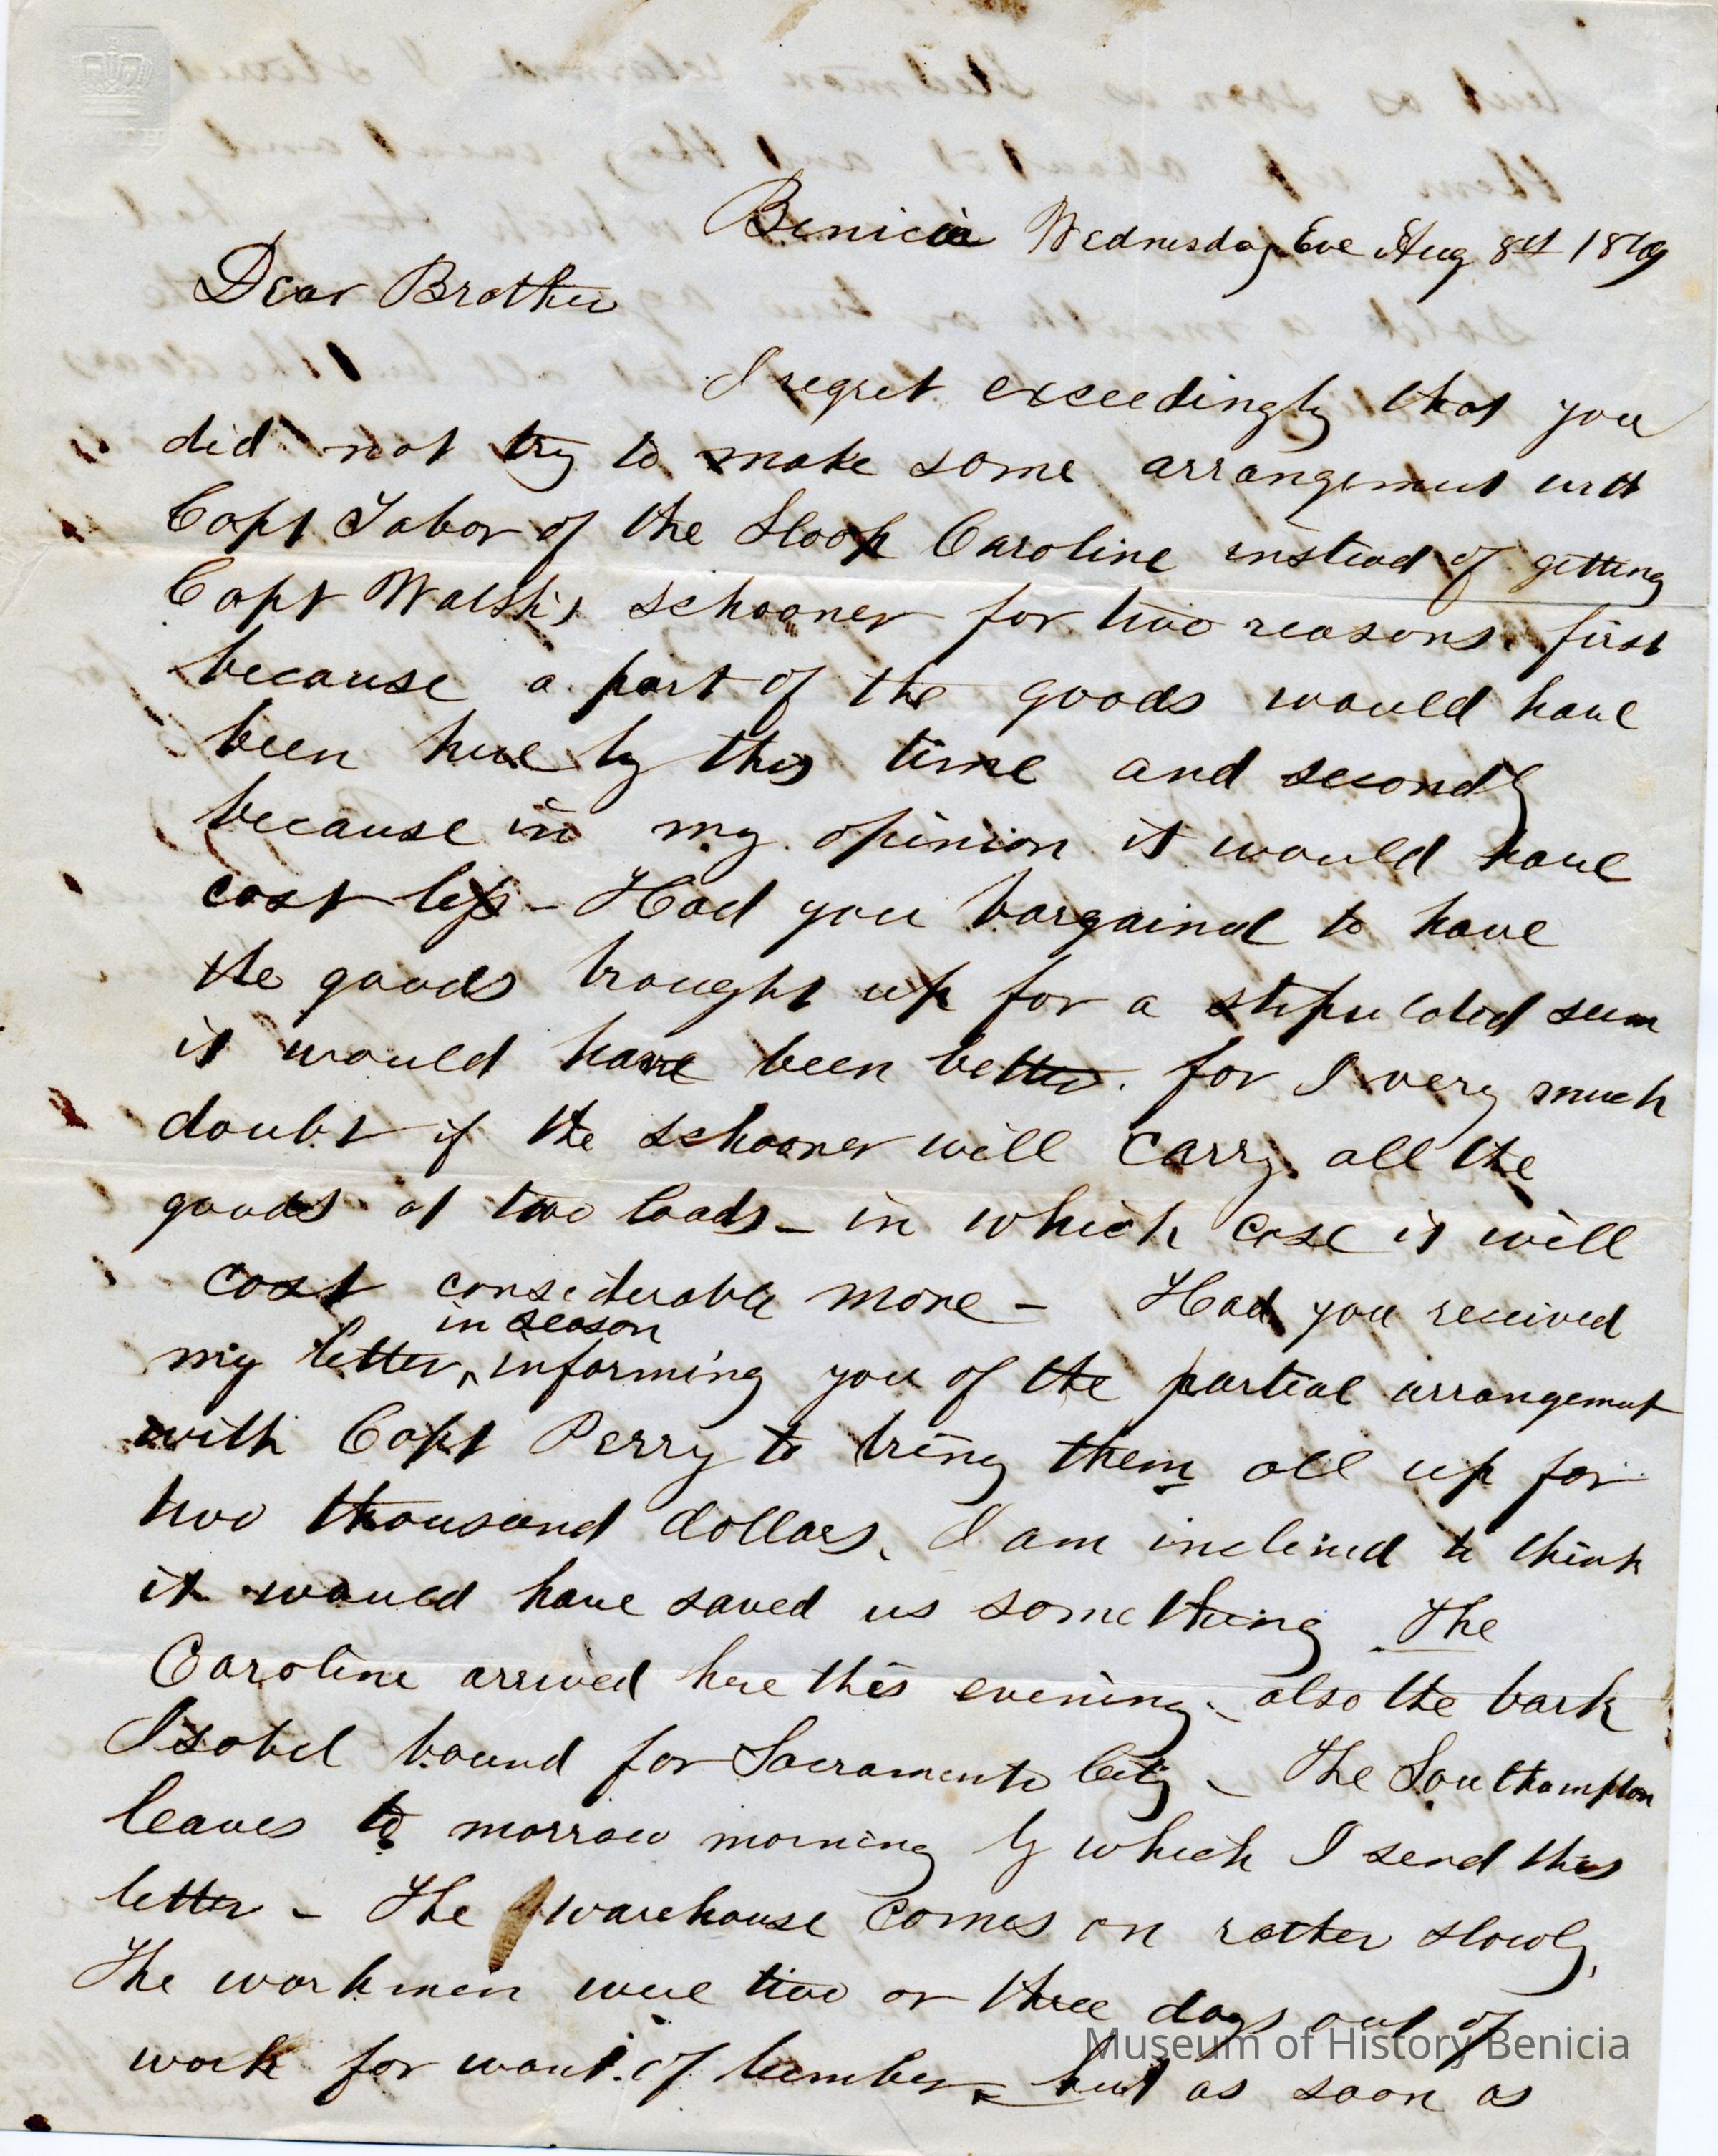 Benicia Wednesday Eve Aug 8th 1849
Dear Brother
I regret exceedingly that you
did not try to make some arrangement with
Capt Tabor of the Sloop Caroline instead of getting
Capt Walsh's schooner for two reasons. first
because a part of the goods would have
been here by this time and secondly
because in my opinion it would have
cost less - Had you bargained to have
the goods brought up for a stipulated sum
it would have been better. for I very much
doubt if the schooner will carry all the
goods at two loads - in which case it will
cost considerable more - Had you received
in season
my letter, informing you of the partial arrangement
with Capt Perry to bring them all up for
two thousand dollars, I am inclined to think
it would have saved us something The
Caroline arrived here this evening - also the bark
Isobel bound for Sacramento City - The Southampton
leaves to morrow morning by which I send this
letter - The warehouse comes on rather slowly,
The workmen were two or three days out of
work for want of lumber - but as soon as
Museum of History Benicia